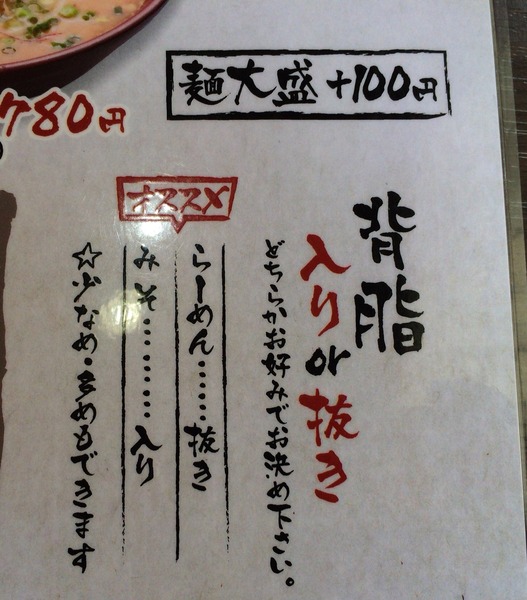 780円
麺大盛 +100円
背脂
入りor抜き
どちらかお好みでお決め下さい。
オススメ
らーめん……抜き
みそ………入り
☆少なめ・多めもできます